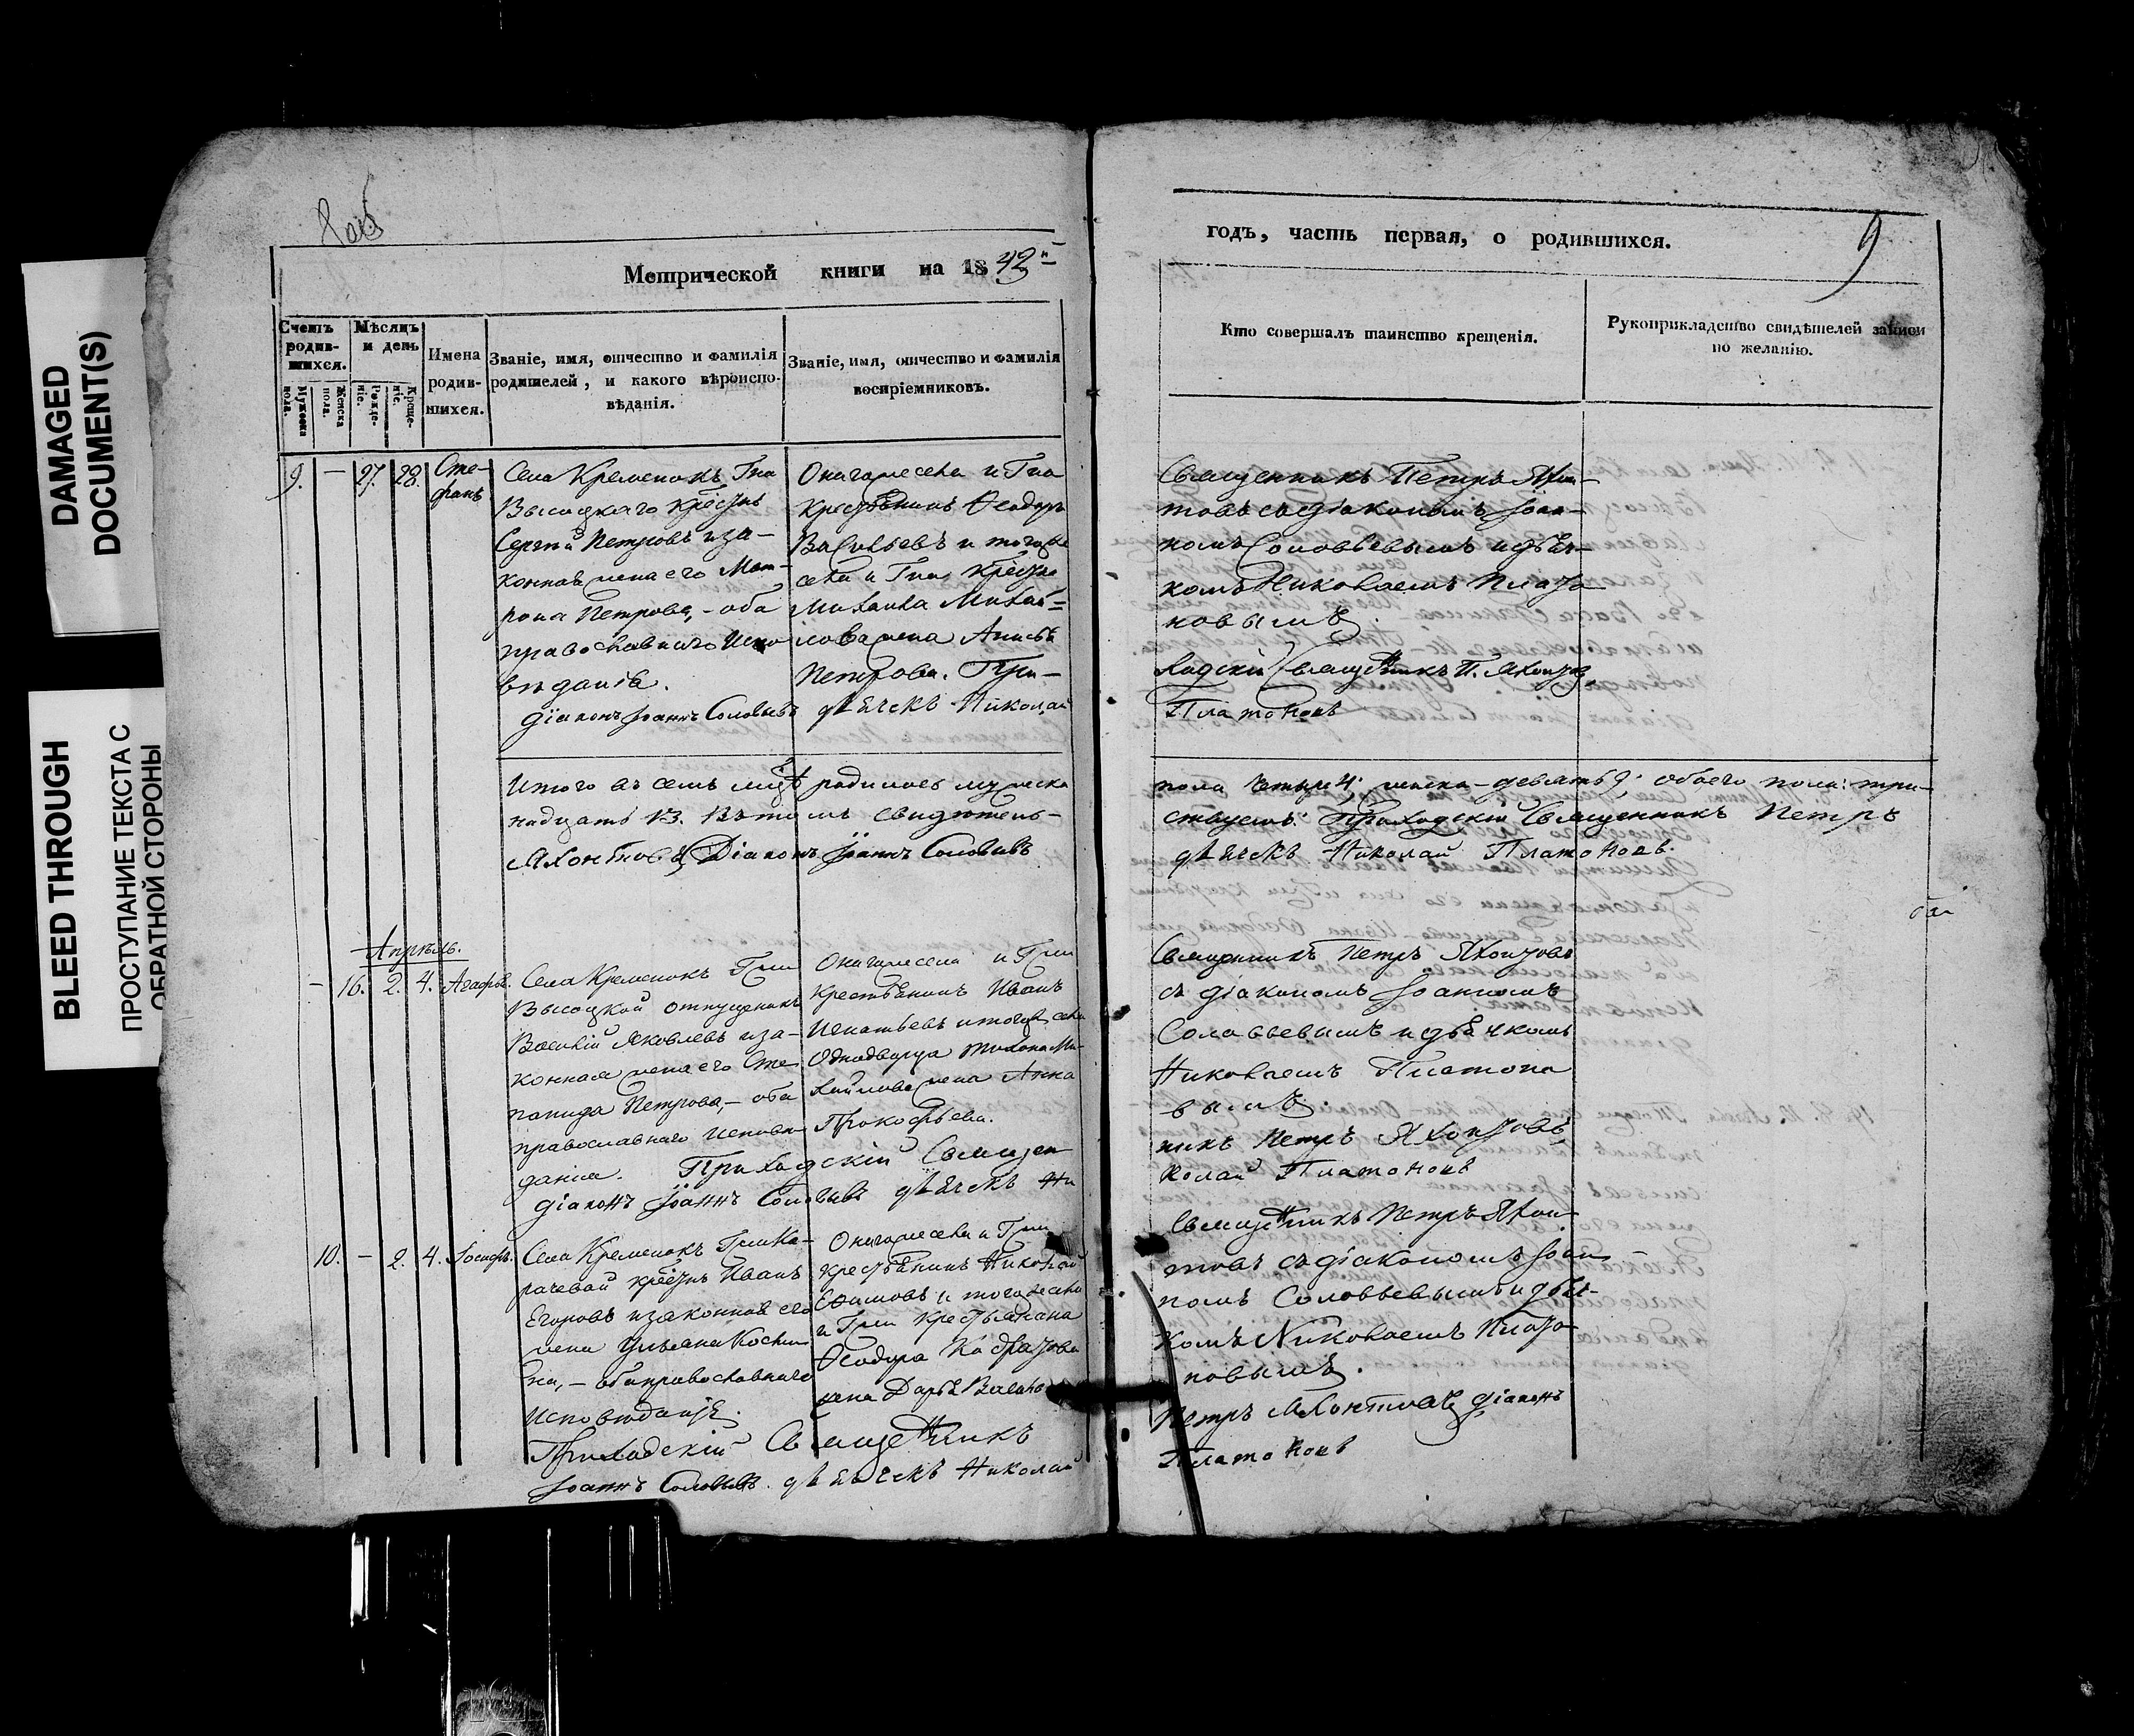 DAMAGED
DOCUMENT(S)
BLEED THROUGH
ПРОСТУПАНИЕ ТЕКСТА С
ОБРАТНОЙ СТОРОНЫ
Метрической книги на 1842й
Счетъ родив-шихся.
Мужеска пола.
Женска пола.
Мѣсяцъ и день
Рожде-нiе.
Креще-нiе.
Имена родив-шихся.
Званiе, имя, отчество и фамилiя
родителей, и какого вѣроиспо-
вѣданiя.
Званiе, имя, отчество и фамилiя
воспрiемниковъ.
9. — 27. 28. Сте-
фанъ
Села Кременокъ Гна
Высоцкаго
Сергiй Петровъ и за-
конная жена его Мат-
рона Петрова, - оба
православнаго Испо
вѣданiя.
Дiаконъ Iоаннъ Соловьевъ
Онагожесела и Гна
Крестьянинъ Ѳеодоръ
Васильевъ и тогоже
села и Гна
Михаила Михай=
лова жена Анисья
Петрова. При-
дьячекъ Николай
Итого въ семъ родилось мужеска
надцать 13. Въ томъ свидѣтель-
Яхонтовъ Дiаконъ Iоаннъ Соловьевъ
Апрѣль.
— 16. 2. 4. Агафья.
Села Кременокъ Гжи
Высоцкой отпущеникъ
Василiй Яковлевъ и за-
конная жена его Сте
панида Петрова, - оба
православнаго Исповѣ
данiя. Приходскiй Священ
дiаконъ Iоаннъ Соловьевъ дьячекъ Ни
Онагожесела и Гжи
Крестьянинъ Иванъ
Игнатьевъ и тогоже села
Однодворца Ми-
хайлова жена Анна
Прокофьева.
10. — 2. 4. Iосифъ.
Села Кременокъ Гжи Ка-
рачевой Иванъ
Егоровъ и законная его
жена Ульяна
на, - оба православнаго
Исповѣданiя.
Приходскiй Священникъ
Iоаннъ Соловьевъ. дьячекъ Николай
Онагожесела и Гжи
Крестьянинъ Николай
Ефимовъ и тогожесела
и Гжи Крестьянина
Ѳеодора
жена Дарья
годъ, часть первая, о родившихся.
9
Кто совершалъ таинство крещенiя.
Рукоприкладство свидѣтелей записи
по желанiю.
Священникъ Петръ Яхон-
товъ съ дiакономъ Iоан-
номъ Соловьевымъ и дьяч-
комъ Николаемъ Плато
новымъ.
ходскiй Священникъ П. Яхонтовъ
Платоновъ
пола четыре 4, женска - девять 9; обоего пола: три-
ствуемъ: Приходскiй Священникъ Петръ
дьячекъ Николай Платоновъ.
Священникъ Петръ Яхонтовъ
съ дiакономъ Iоанномъ
Соловьевымъ и дьячкомъ
Николаемъ Платоно
вымъ.
никъ Петръ Яхонтовъ
колай Платоновъ
Священникъ Петръ Яхон-
товъ съ дiакономъ Iоан-
номъ Соловьевымъ и дьяч-
комъ Николаемъ Плато-
новымъ.
Петръ Яхонтовъ дiаконъ
Платоновъ